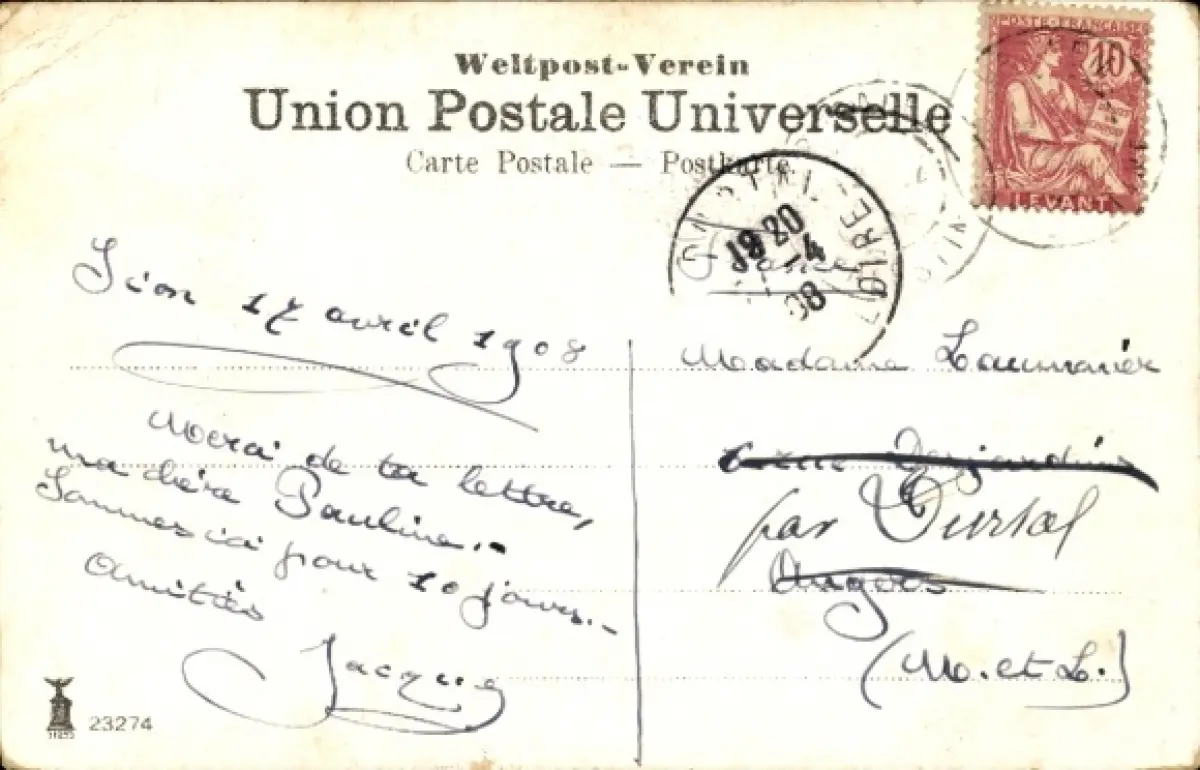 Weltpost-Verein
Union Postale Universelle
Carte Postale — Postkarte.
POSTE FRANÇAISE
10
LEVANT
19 20
-4
08
LOIRE
France
Sion 17 avril 1908
Merci de ta lettre,
ma chère Pauline.-
Sommes ici pour 10 jours.-
Amitiés
Jacques
Madame Laumonier
Desjardins
par Durtal
Angers
(M. et L.)
23274